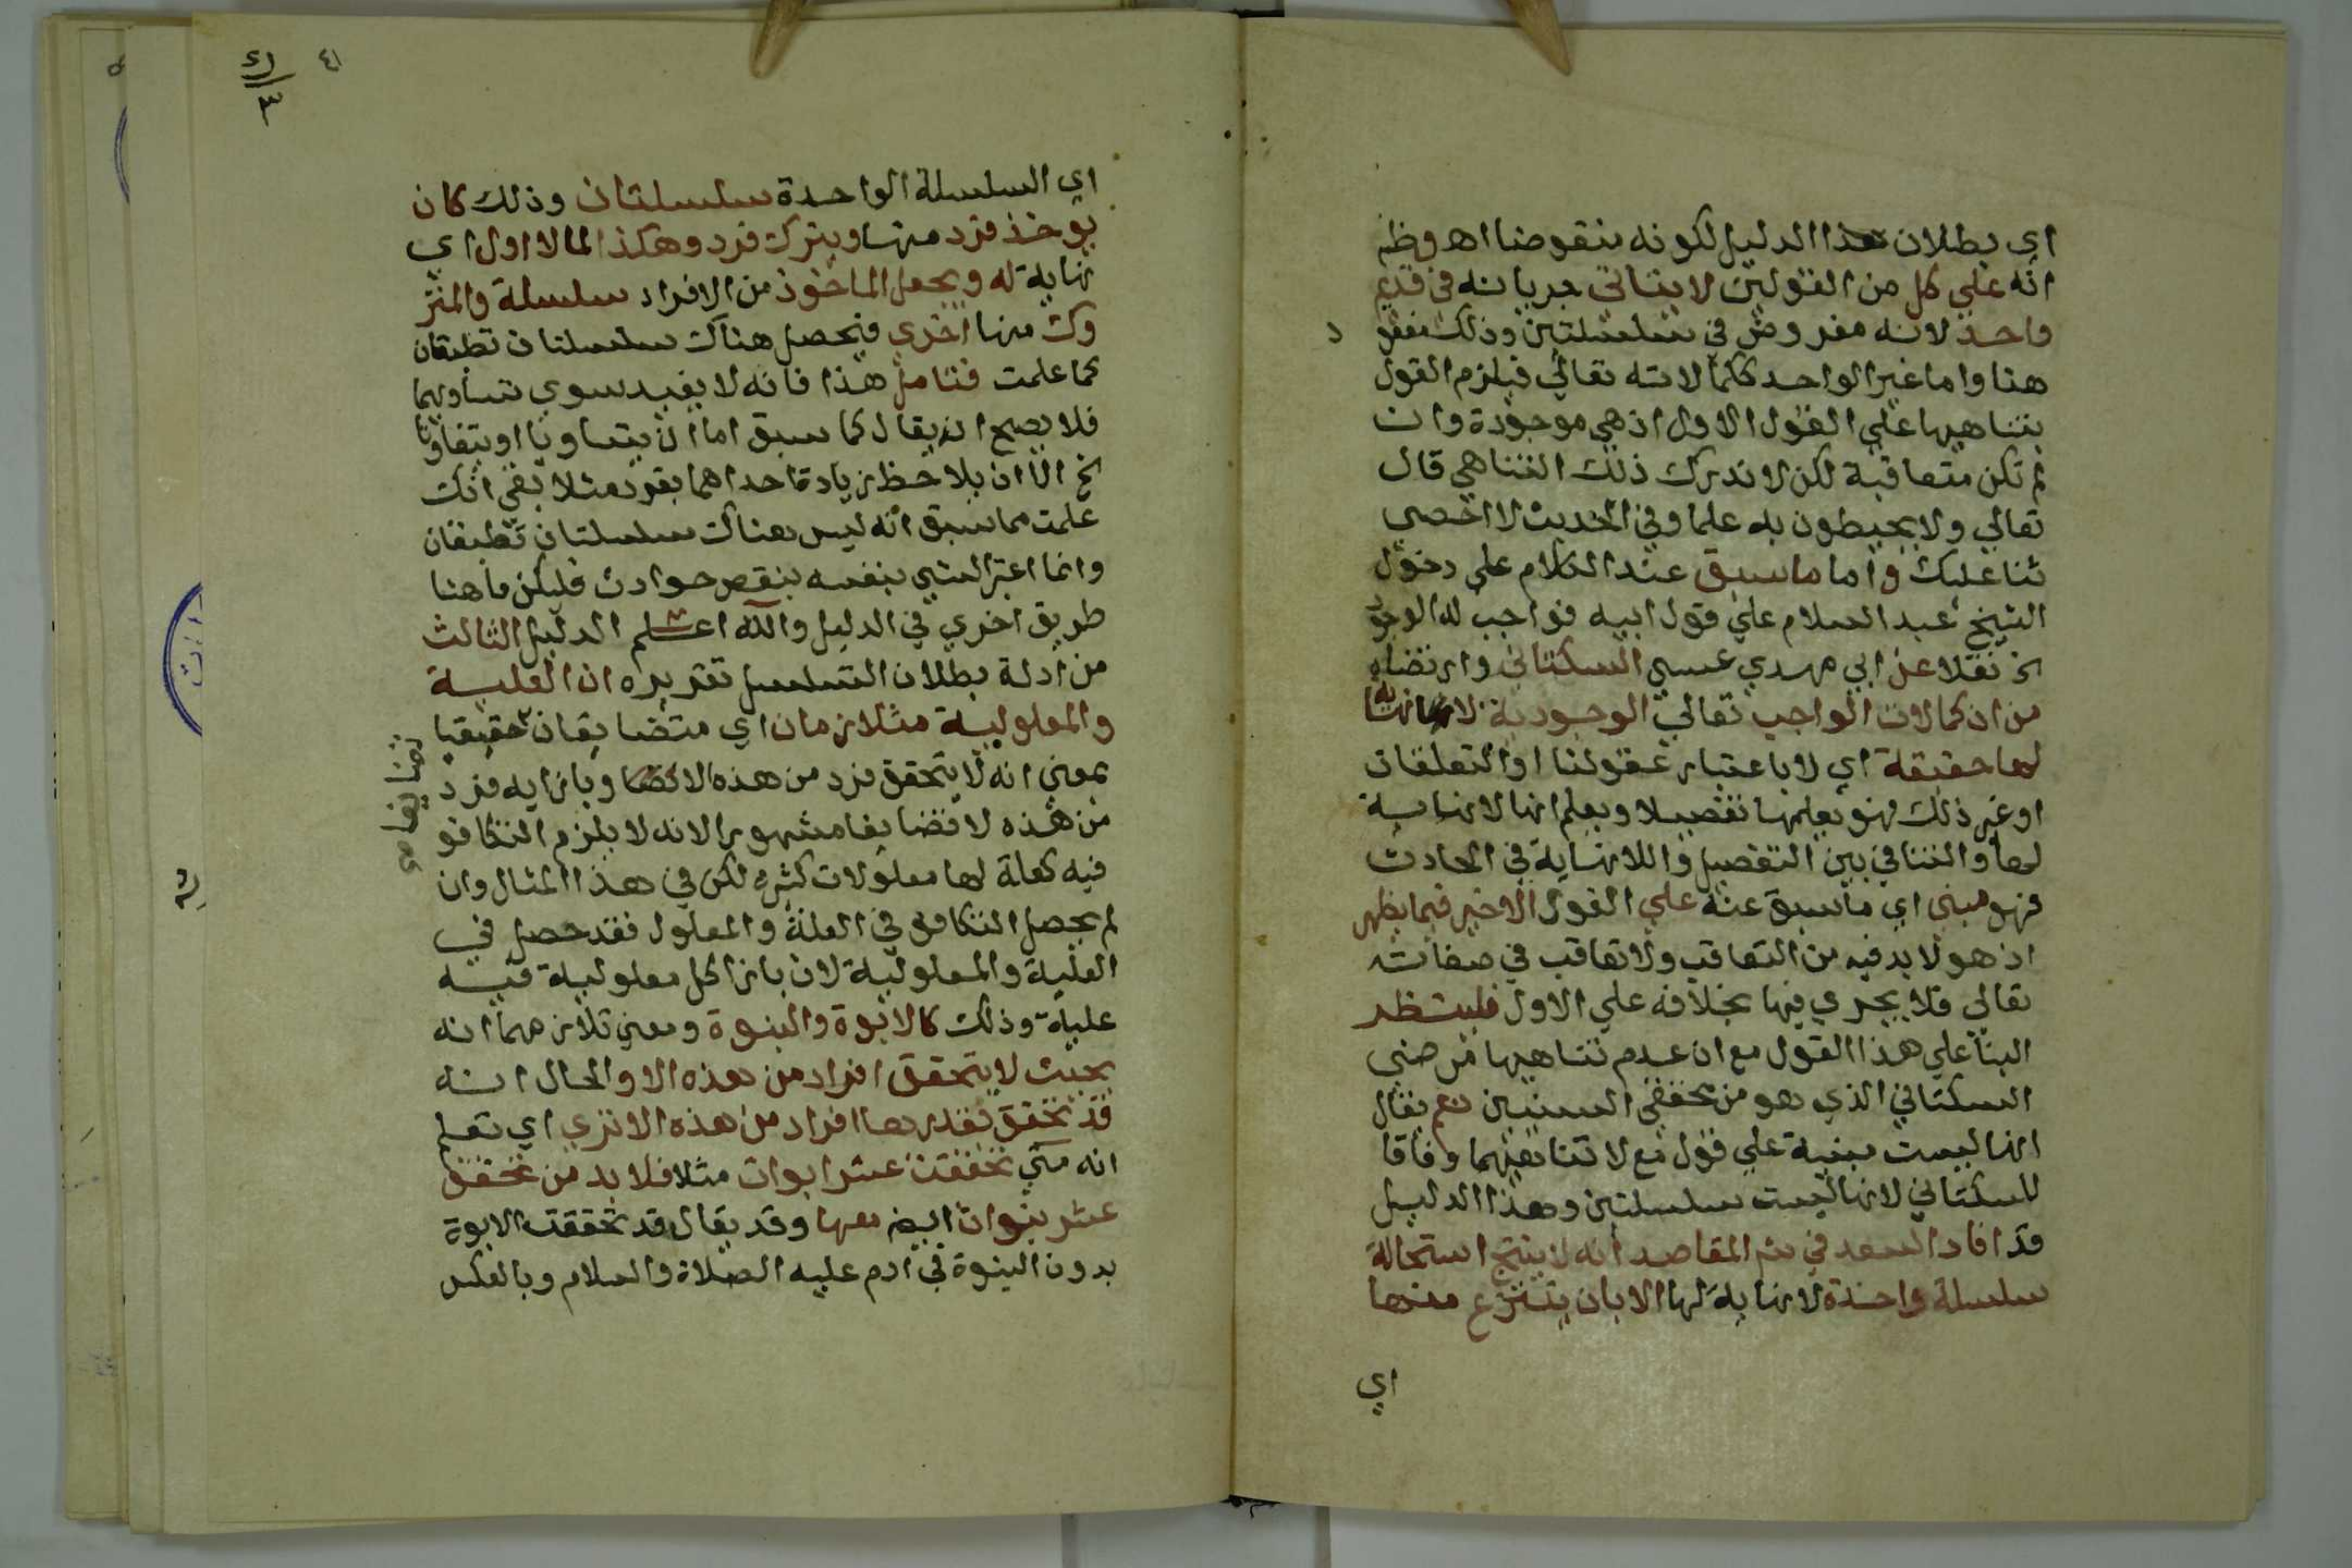 اي بطلان هذا الدليل لكونه منقوضا اهـ وظهر
انه علي كل من القولين لا يتاتي جريانه في قديم
واحد لانه مفروض في سلسلتين وذلك مفقو
د
هنا واما غير الواحد ككمالاته تعالي فيلزم القول
بتناهيها علي القول الاول اذ هي موجودة وان
لم تكن متعاقبة لكن لا ندرك ذلك التناهي قال
تعالي ولا يحيطون به علما وفي الحديث لا احصي
ثنا عليك واما ما سبق عند الكلام علي دخول
الشيخ عبد السلام علي قول ابيه فواجب له الوجود
الخ نقلا عن ابي مهدي عيسي السكتاني وارتضاه
من ان كمالات الواجب تعالي الوجودية لا نهاية
لها حقيقة اي لا باعتبار عقولنا او التعلقات
او غير ذلك فهو يعلمها تفصيلا ويعلم انها لا نهاية
لها والتنافي بين التفصيل واللا نهاية في الحادث
فهو مبني اي ما سبق عنه علي القول الاخير فيما يظهر
اذ هو لا بد فيه من التعاقب ولا تعاقب في صفاته
تعالي فلا يجري فيها بخلافه علي الاول فلينتظر
البنا علي هذا القول مع ان عدم تناهيها مرضي
السكتاني الذي هو من محققي السنيين نعم يقال
انها ليست مبنية علي قول مع لا تتابعهما وفاقا
للسكتاني لانها ليست سلسلتين وهذا الدليل
قد افاد السعد في شم المقاصد انه لا ينتج استحالة
سلسلة واحدة لا نهاية لها الا بان ينتزع منها
اي
٤١
٤١
٣
اي السلسلة الواحدة سلسلتان وذلك كان
يوخذ فرد منها ويترك فرد وهكذا الما لا اول اي
نهاية له ويجعل الماخوذ من الافراد سلسلة والمتر
وك منها اخري فيحصل هناك سلسلتان تطبقان
كما علمت فتامل هذا فانه لا يفيد سوي تساويهما
فلا يصح ان يقال كما سبق اما ان يتساويا او يتفاوتا
الخ الا ان يلاحظ زيادة احداهما بفرد مثلا بقي انك
علمت مما سبق انه ليس هناك سلسلتان تطبقان
وانما اعتبر الشي بنفسه بنقص حوادث فليكن ما هنا
طريق اخري في الدليل والله اعلم الدليل الثالث
من ادلة بطلان التسلسل تقريره ان العلية
والمعلولية متلازمان اي متضايفان حقيقيا
تضايفا
صح
بمعني انه لا يتحقق فرد من هذه الا وبازايه فرد
من هذه لا تضايفا مشهورا لانه لا يلزم التكافو
فيه كعلة لها معلولات كثيره لكن في هذا المثال وان
لم يحصل التكافو في العلة والمعلول فقد حصل في
العلية والمعلولية لان بازا كل معلولية فيه
علية وذلك كالابوة والبنوة ومعني تلازمهما انه
بحيث لا يتحقق افراد من هذه الا والحال انه
قد تحقق بقدرها افراد من هذه الاخري اي تعلم
انه متي تحققت عشر ابوات مثلا فلا بد من تحقق
عشر بنوات ايض معها وقد يقال قد تحققت الابوة
بدون البنوة في ادم عليه الصلاة والسلام وبالعكس